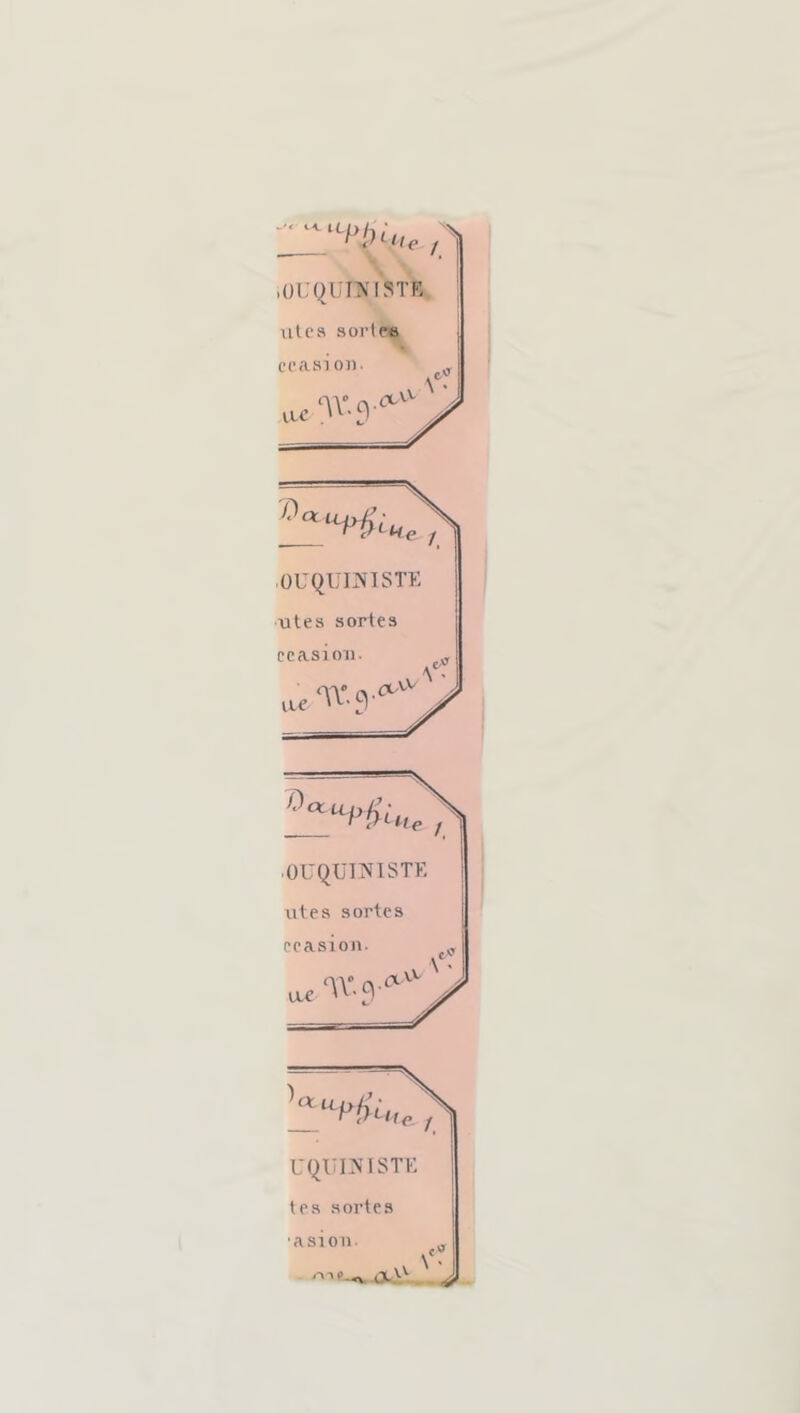 auphine 1.
OUQUINISTE
utes sortes
ccasion.
ue
Dauphine 1.
OUQUINISTE
utes sortes
ccasion.
ue
Dauphine 1.
OUQUINISTE
utes sortes
ccasion.
ue
auphine 1.
UQUINISTE
tes sortes
asion.